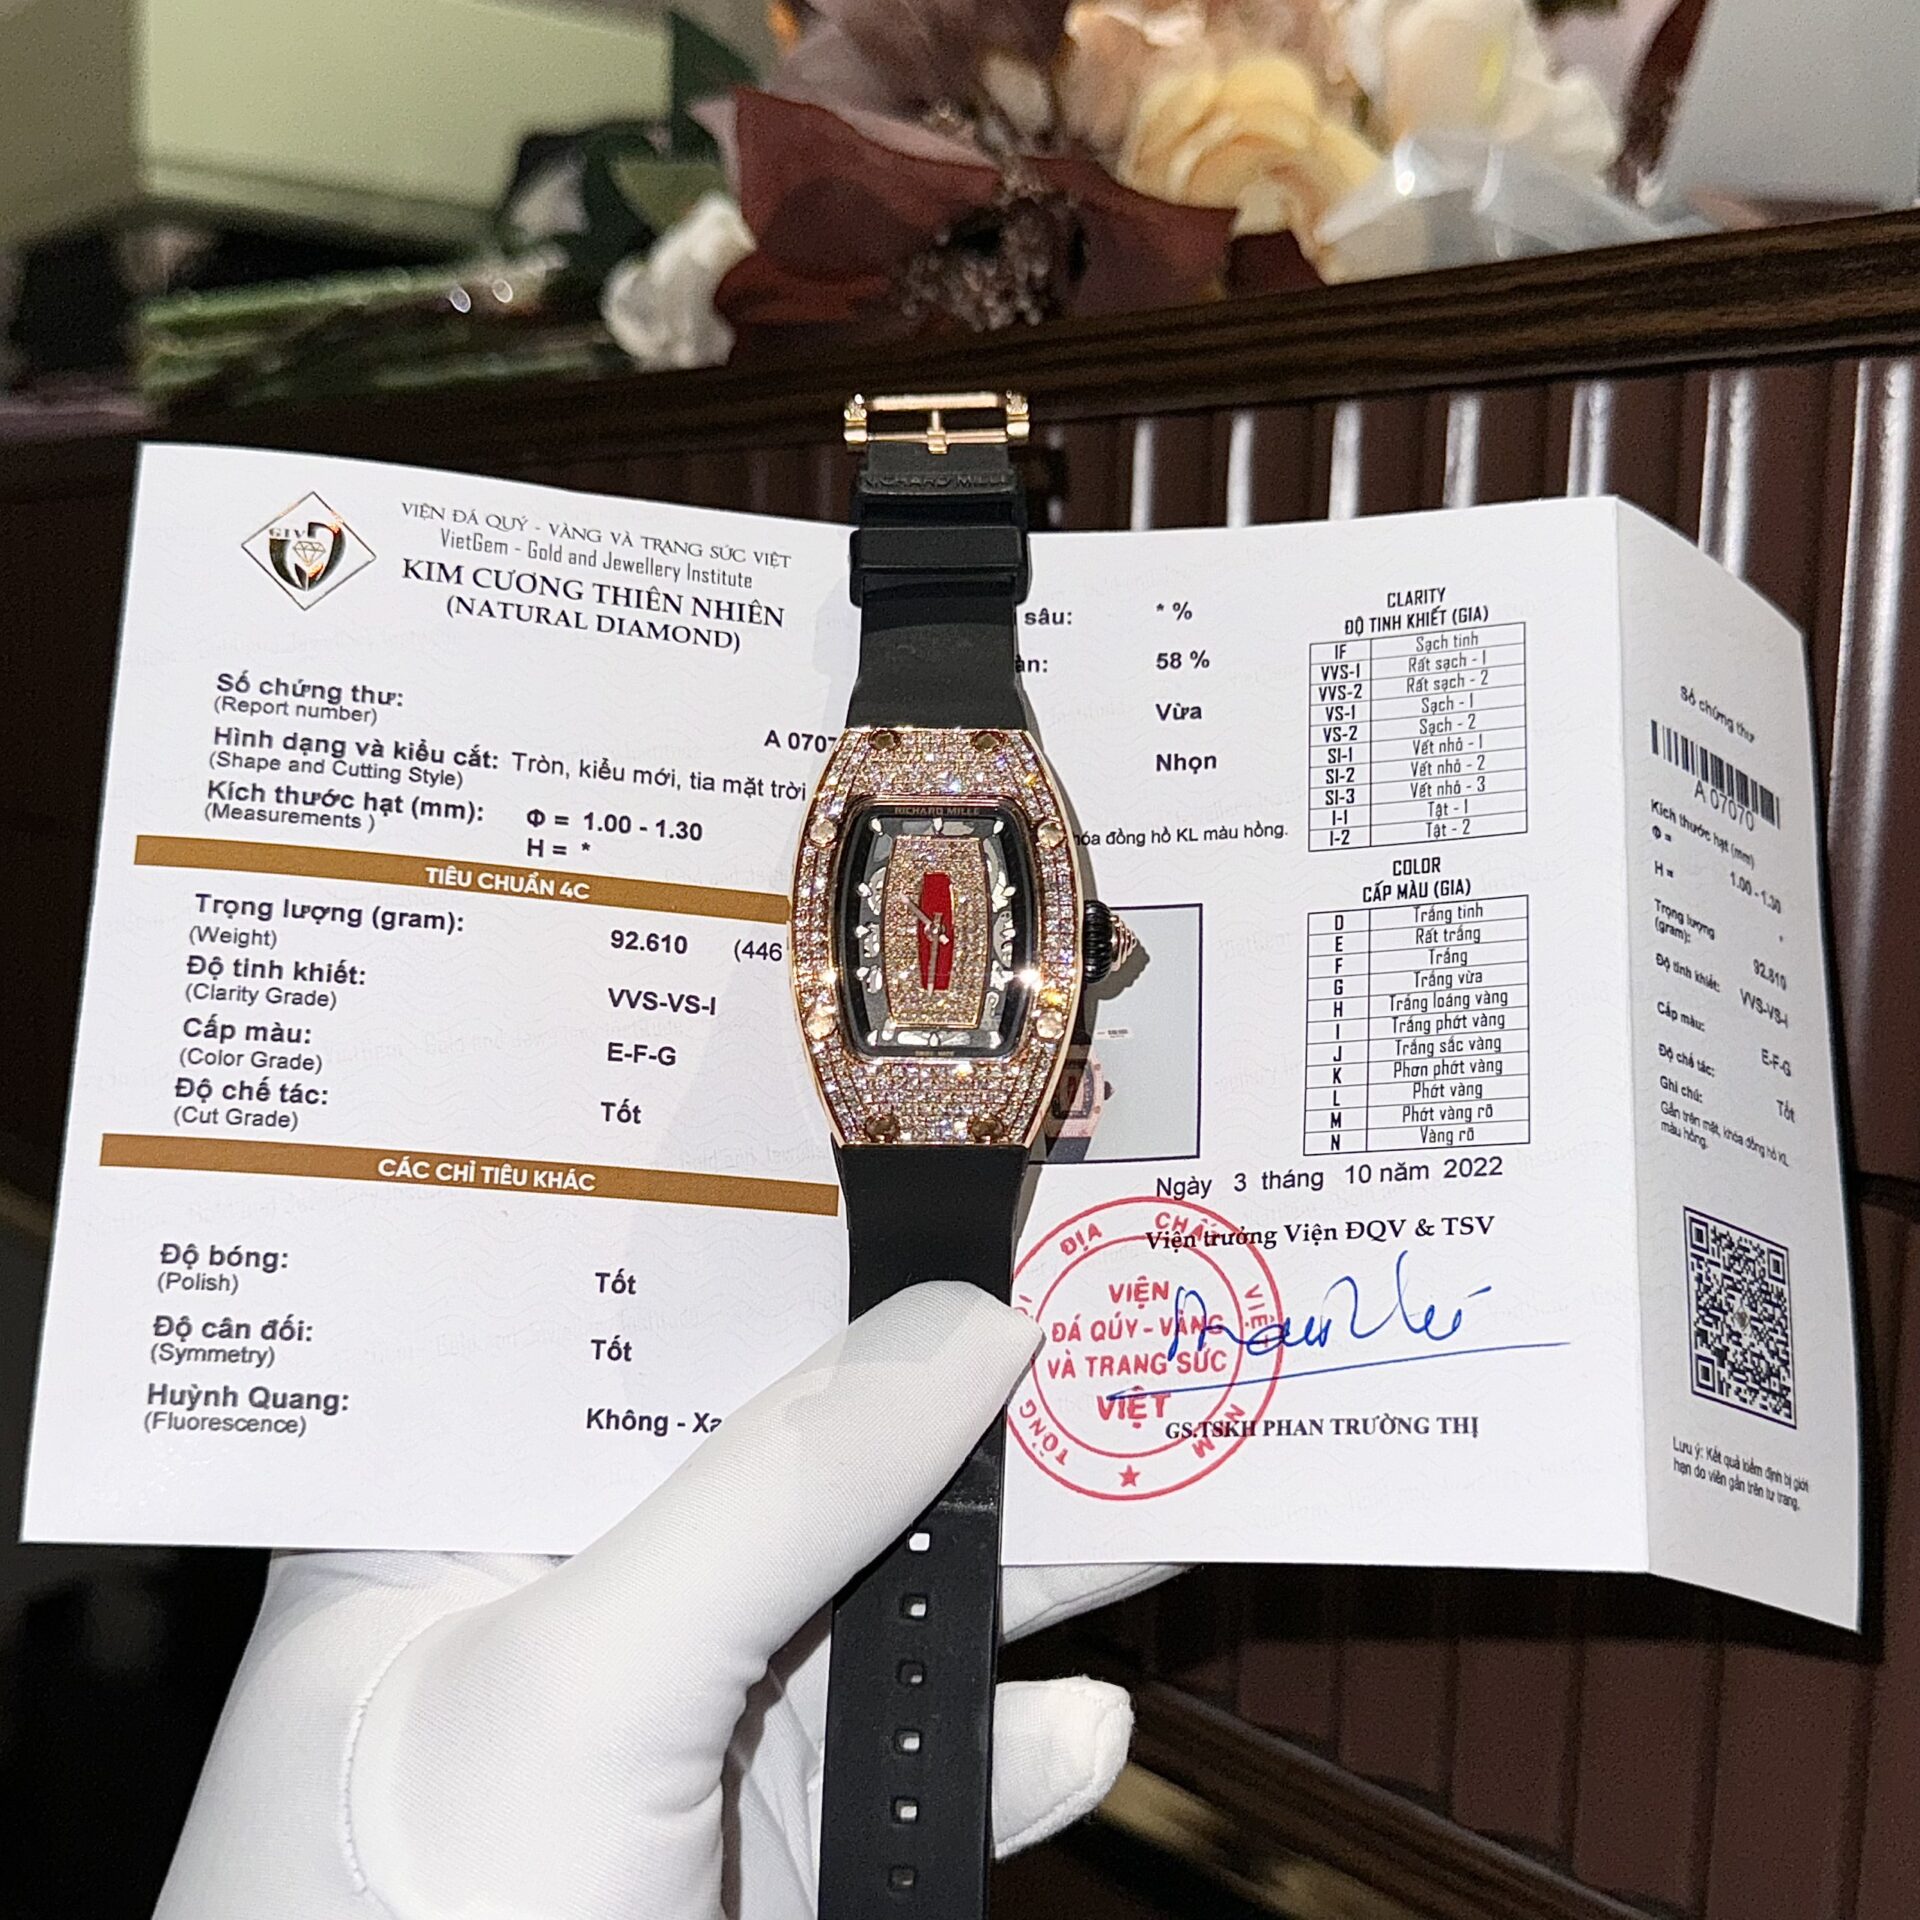 GIV
VIỆN ĐÁ QUÝ - VÀNG VÀ TRANG SỨC VIỆT
VietGem - Gold and Jewellery Institute
KIM CƯƠNG THIÊN NHIÊN
(NATURAL DIAMOND)
Số chứng thư:
(Report number)
A 0707
Hình dạng và kiểu cắt: Tròn, kiểu mới, tia mặt trời
(Shape and Cutting Style)
Kích thước hạt (mm): Φ = 1.00 - 1.30
(Measurements )
H = *
TIÊU CHUẨN 4C
Trọng lượng (gram): 92.610 (446
(Weight)
Độ tinh khiết: VVS-VS-I
(Clarity Grade)
Cấp màu: E-F-G
(Color Grade)
Độ chế tác: Tốt
(Cut Grade)
CÁC CHỈ TIÊU KHÁC
Độ bóng: Tốt
(Polish)
Độ cân đối: Tốt
(Symmetry)
Huỳnh Quang: Không - Xa
(Fluorescence)
RICHARD MILLE
RICHARD MILLE
SWISS MADE
sâu: * %
àn: 58 %
Vừa
Nhọn
hóa đồng hồ KL màu hồng.
CLARITY
ĐỘ TINH KHIẾT (GIA)
IF Sạch tinh
VVS-1 Rất sạch - 1
VVS-2 Rất sạch - 2
VS-1 Sạch - 1
VS-2 Sạch - 2
SI-1 Vết nhỏ - 1
SI-2 Vết nhỏ - 2
SI-3 Vết nhỏ - 3
I-1 Tật - 1
I-2 Tật - 2
COLOR
CẤP MÀU (GIA)
D Trắng tinh
E Rất trắng
F Trắng
G Trắng vừa
H Trắng loáng vàng
I Trắng phớt vàng
J Trắng sắc vàng
K Phơn phớt vàng
L Phớt vàng
M Phớt vàng rõ
N Vàng rõ
Ngày 3 tháng 10 năm 2022
Viện trưởng Viện ĐQV & TSV
TỔNG HỘI ĐỊA CHẤT VIỆT NAM
VIỆN
ĐÁ QÚY - VÀNG
VÀ TRANG SỨC
VIỆT
GS.TSKH PHAN TRƯỜNG THỊ
Số chứng thư
A 07070
Kích thước hạt (mm)
Φ = 1.00 - 1.30
H = *
Trọng lượng
(gram): 92.610
Độ tinh khiết: VVS-VS-I
Cấp màu: E-F-G
Độ chế tác: Tốt
Ghi chú:
Gắn trên mặt, khóa đồng hồ KL
màu hồng.
Lưu ý: Kết quả kiểm định bị giới
hạn do viên gắn trên tư trang.